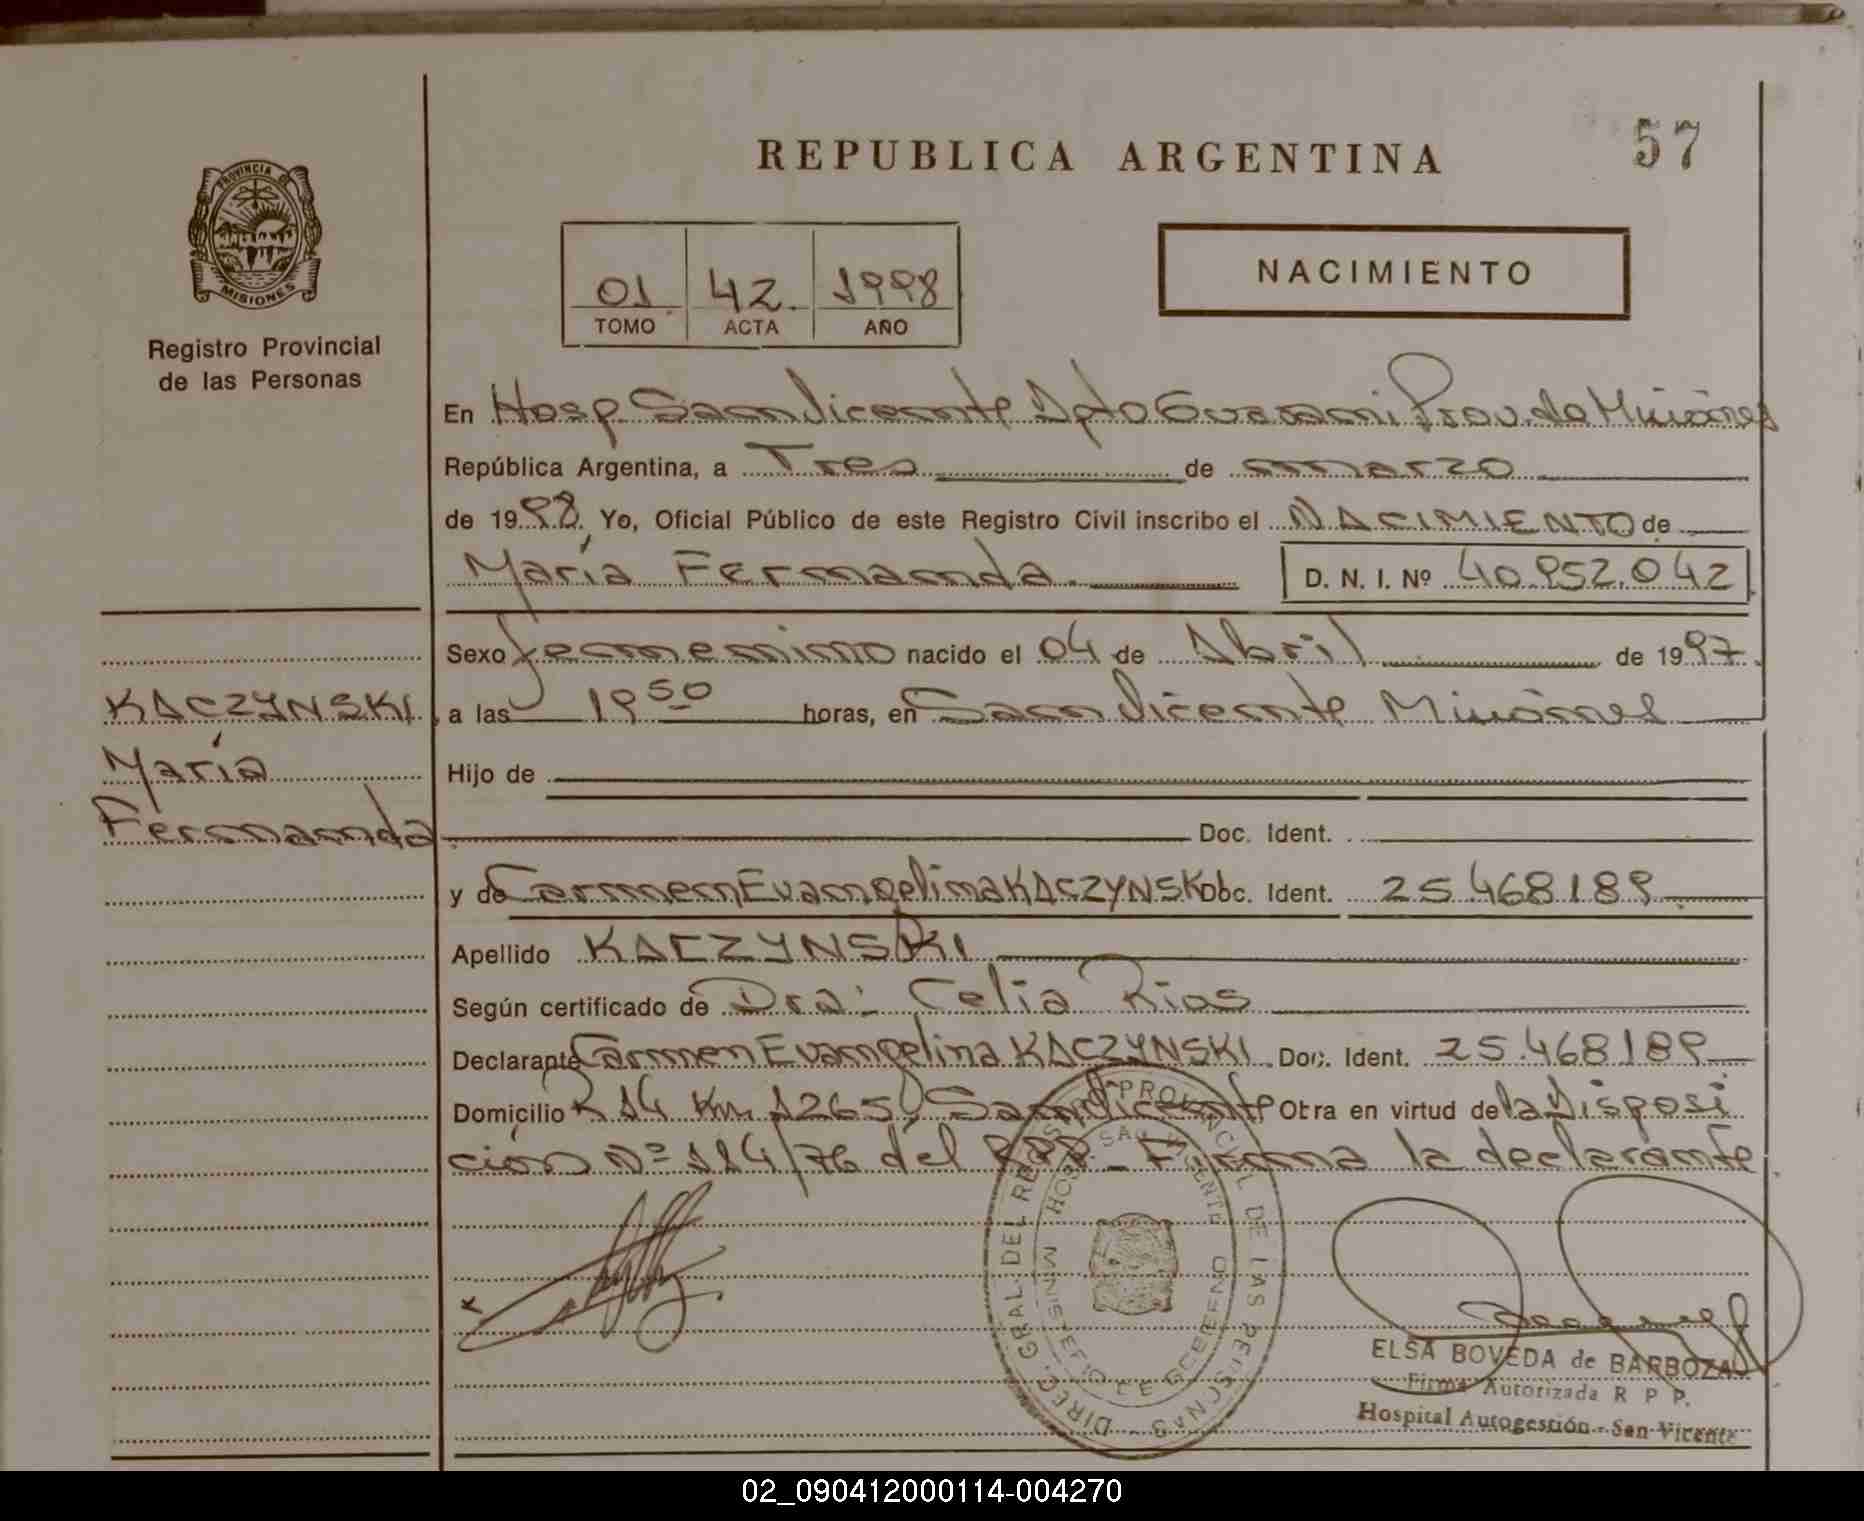 REPUBLICA ARGENTINA
57
PROVINCIA DE
MISIONES
Registro Provincial
de las Personas
01 42. 1998
TOMO ACTA AÑO
NACIMIENTO
En Hosp. San Vicente Dpto Guarani Prov. de Misiones
República Argentina, a Tres de marzo
de 1998. Yo, Oficial Público de este Registro Civil inscribo el NACIMIENTO de
María Fernanda D. N. I. Nº 40.952.042
Sexo femenino nacido el 04 de Abril de 1997.
KACZYNSKI, a las 19 50 horas, en San Vicente Misiones
María
Hijo de
Fernanda
Doc. Ident.
y de Carmen Evangelina KACZYNSKI Doc. Ident. 25.468189
Apellido KACZYNSKI
Según certificado de Dra: Celia Rios
Declarante Carmen Evangelina KACZYNSKI Doc. Ident. 25.468189
Domicilio R 14 Km 1265, San Vicente Otra en virtud de la Disposi
ción Nº 114/76 del RPP - Firma la declarante
x
DIREC. GRAL. DEL REGISTRO PROVINCIAL DE LAS PERSONAS
HOSP. SAN VICENTE
MINISTERIO DE GOBIERNO
ELSA BOVEDA de BARBOZA
Firma Autorizada R P P.
Hospital Autogestión - San Vicente
02_090412000114-004270